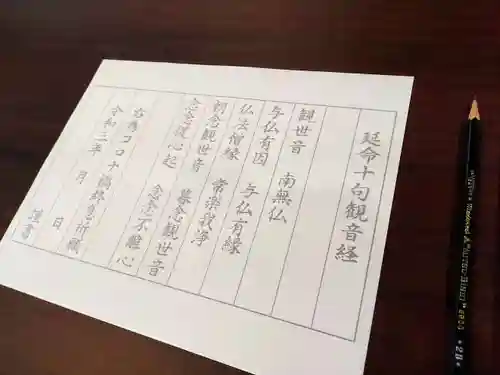 延命十句観音経
観世音 南無仏
与仏有因 与仏有縁
仏法僧縁 常楽我浄
朝念観世音 暮念観世音
念念従心起 念念不離心
右為コロナ禍終息祈願
令和三年 月 日 謹書
Made by "MITSU-BISHI" 9800 2B